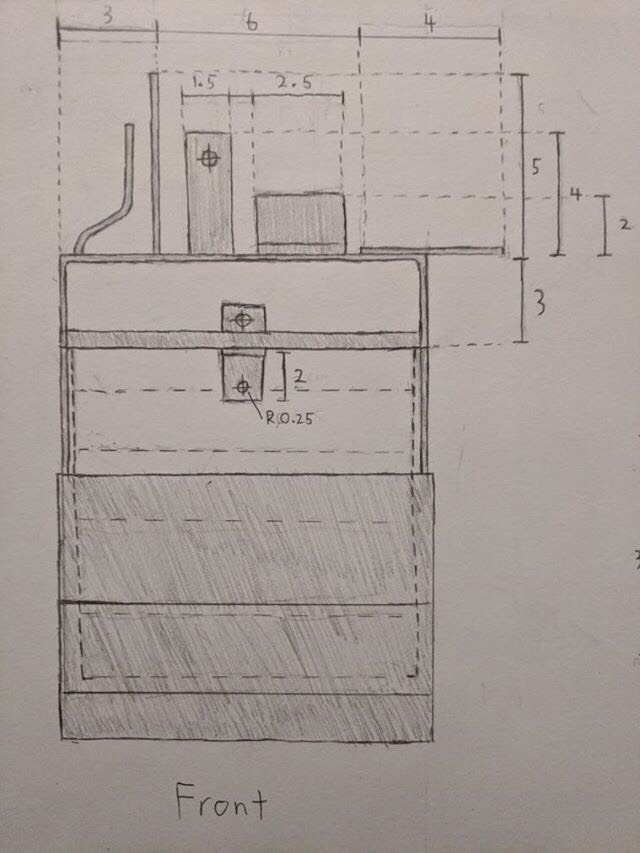 3 6 4
1.5 2.5
5 4 2
3
2
R0.25
Front